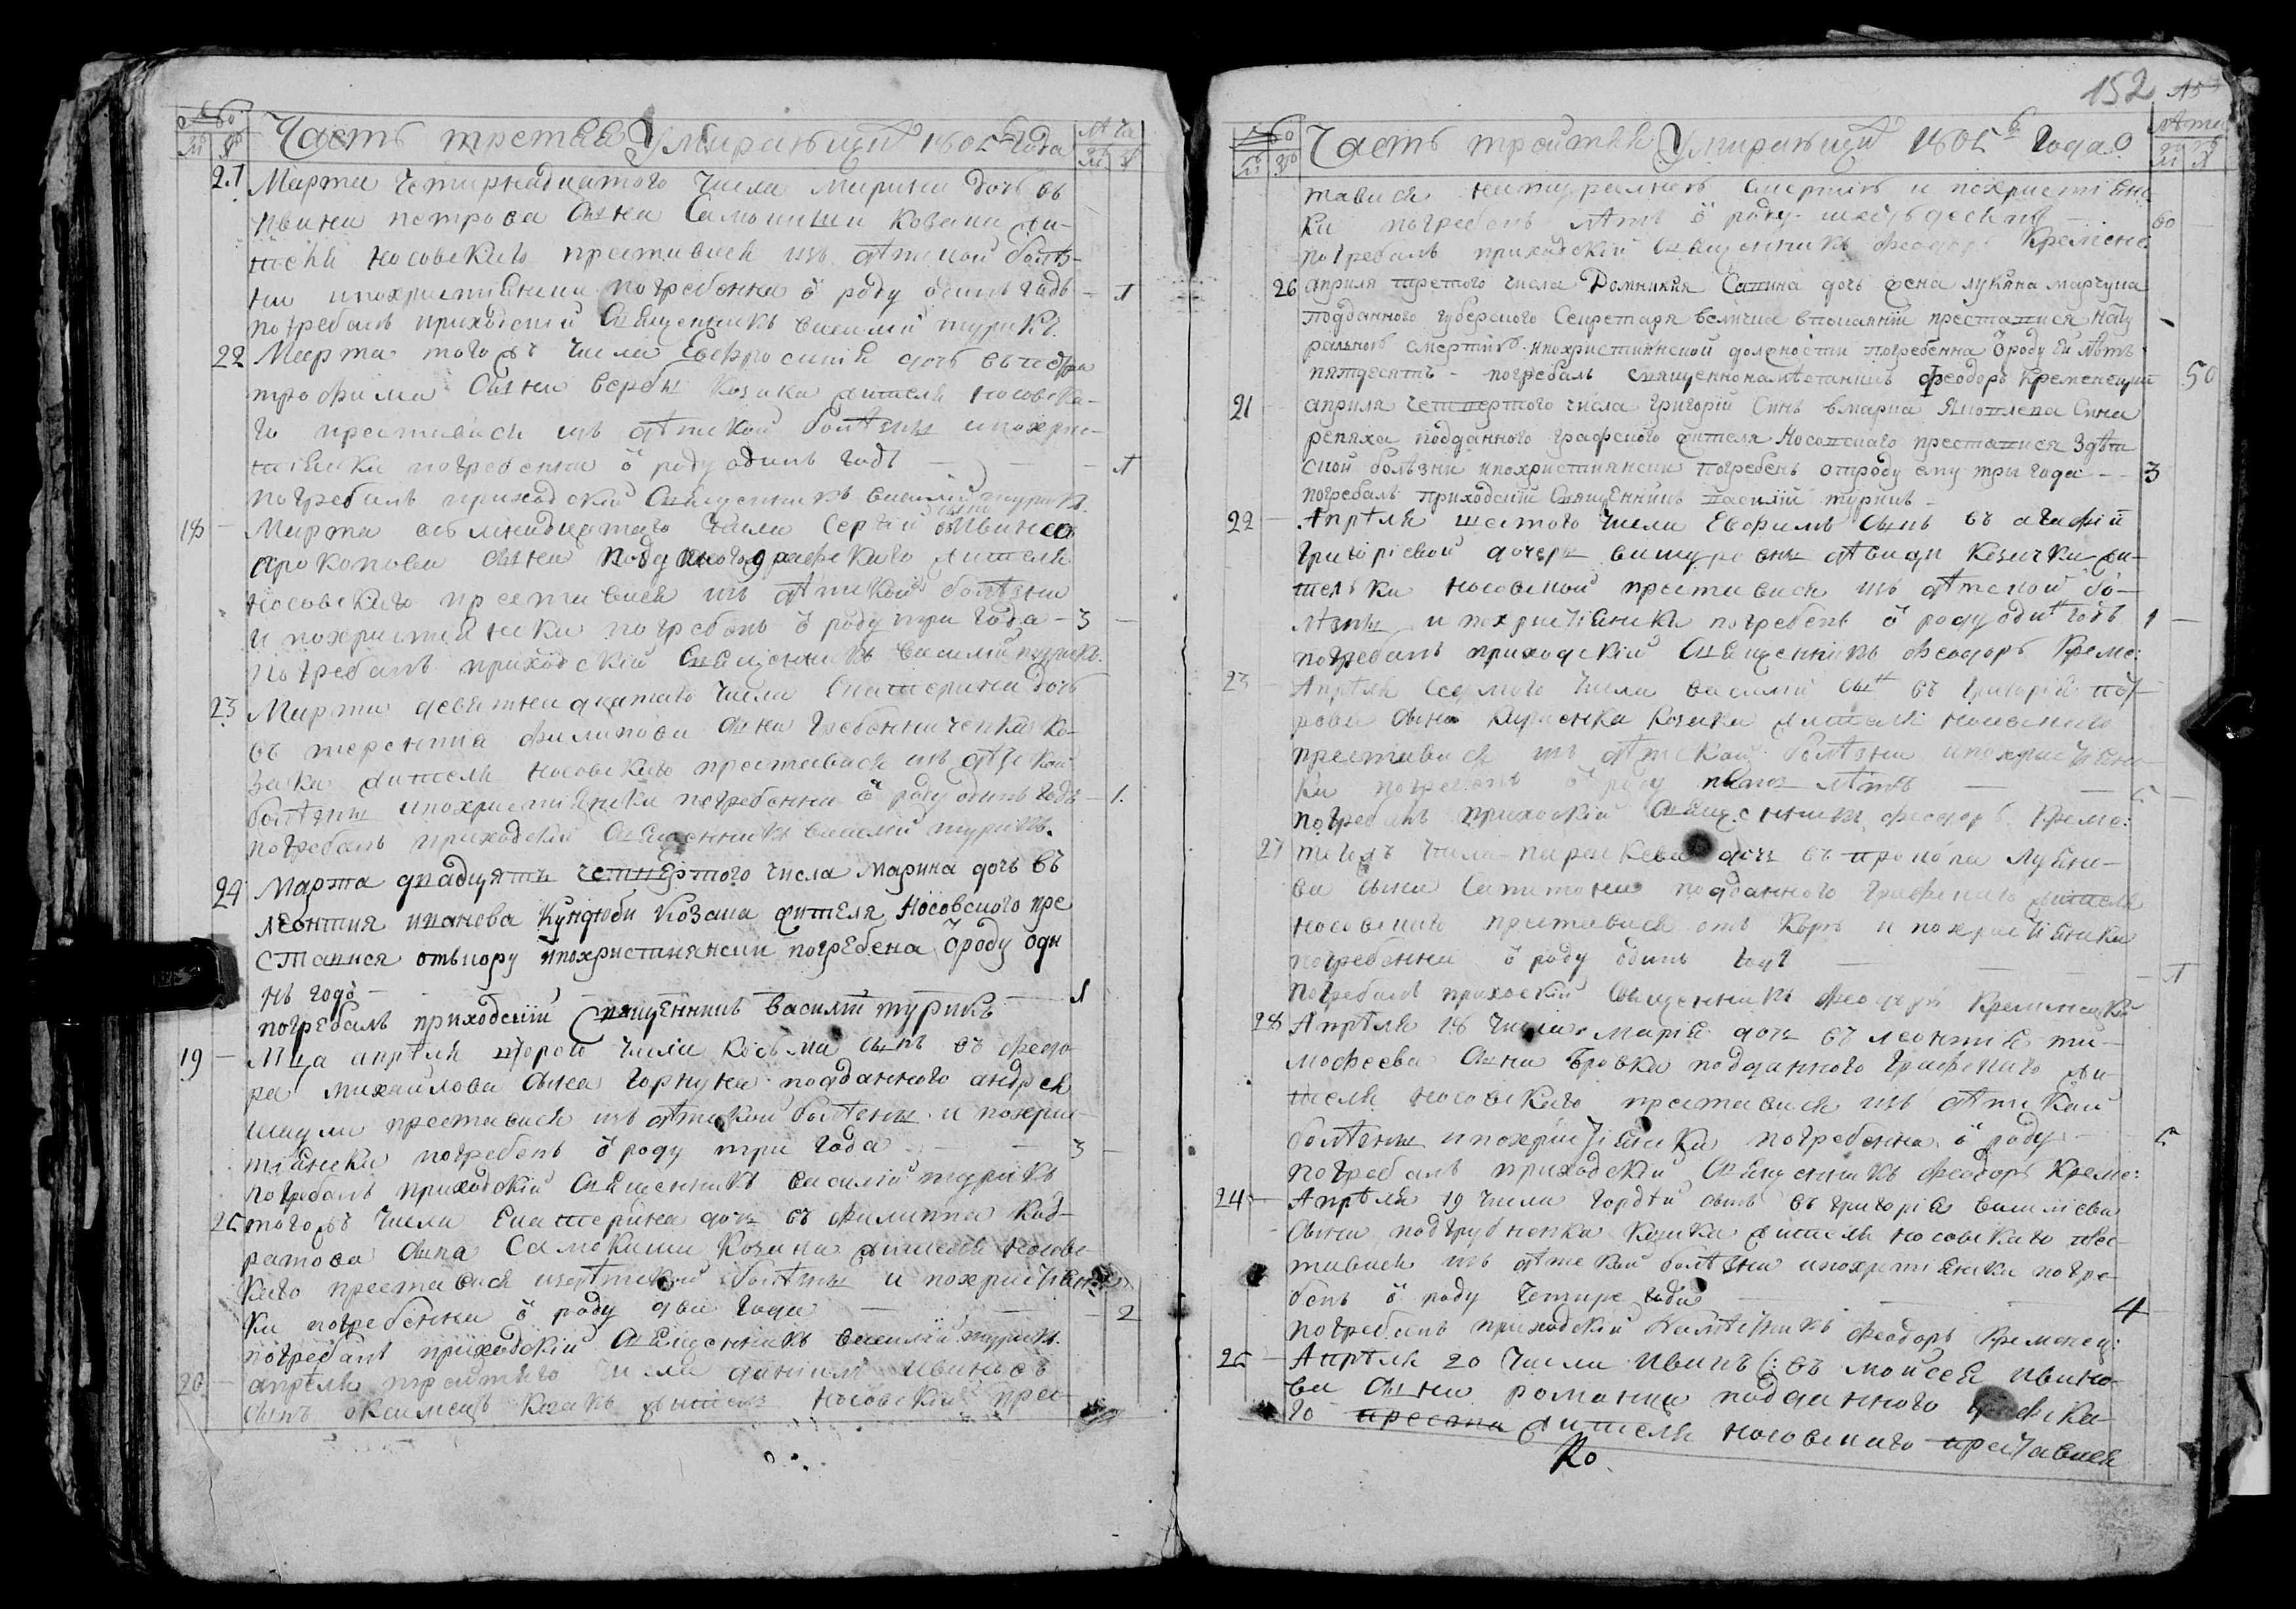 Часть третяя Умирающий 1805 года
21 Марта четирнадцатого числа Марина дочь въ
Ивана петрова сина Самокиши козака жи-
теля носовского преставися изъ дѣтской болѣз-
ни ипохристіянски погребенна ѿ роду одинъ годъ — 1
погребалъ приходскій священникъ василій турикъ.
22 Марта того жъ числа Евфросинія дочь въ
трофима сина вербы козака жителя носовска-
го преставися изъ дѣтской болѣзни ипохри-
стіянски погребенна ѿ роду одинъ годъ — 1
погребалъ приходскій священникъ василій турикъ.
18 Марта осьмнадцатого числа Сергій синъ въ Ивана
прокопова сина подданного графского жителя
носовского преставися изъ дѣтской болѣзни
и похристіянски погребенъ ѿ роду три года — 3
погребалъ приходскій священникъ василій турикъ.
23 Марта девятнадцатаго числа Екатерина дочь
въ терентія филипова сина Гребенниченка ко-
зака жителя носовского преставися изъ дѣтской
болѣзни ипохристіянски погребенна ѿ роду одинъ годъ — 1.
погребалъ приходскій священникъ василій турикъ.
24 Марта двадцять четвертого числа Марина дочь въ
леонтия иванова Кундюби козака жителя Носовского пре
ставися отвкору ипохристиянски погребена ѿ роду оди
нъ годъ — 1
погребалъ приходскій священникъ василій турикъ
19 Мца апрѣля второго числа Косьма синъ въ федо-
ра михайлова сина горкуна подданного андрея
преставися изъ дѣтской болѣзни и похрис-
тіянски погребенъ ѿ роду три года — 3
погребалъ приходскій священникъ василій турикъ
25 того жъ числа Екатерина дочь въ филиппа Код-
ратова сина Самокиши козака жителя носовс-
кого преставися издѣтской болѣзни и похристіянс-
ки погребенна ѿ роду два года — 2
погребалъ приходскій священникъ василій турикъ.
20 апрѣля третяго числа даніилъ ивановъ
синъ козакъ житель носовскій прес-
152
Часть третяя Умирающий 1805 года
тавися натуралною смертію и похристіянс
ки погребенъ лѣтъ ѿ роду шестьдесятъ — 60
погребалъ приходскій священникъ феодоръ Кременс
26 априля третого числа Домникия Савина дочь жена лукяна марчука
подданного губерского Секретаря величка впокаянии преставися Нату
ральною смертию ипохристиянской должности погребенна ѿ роду ей лѣтъ
пятдесятъ - погребалъ священнонамѣстникъ Феодоръ Кременецкий 50
21 априля четвертого числа григорій Синъ вмарка Яковлева Сина
репяха подданного графского жителя Носовскаго преставися Здѣт
ской болѣзни ипохристиянски погребенъ отроду ему три года — 3
погребалъ приходскій священникъ василій турикъ
22 Апрѣля шестого числа Евфимъ синъ въ агафіи
григоріевой дочери козачки жи-
тельки носовской преставися изъ дѣтской бо-
лѣзни и похристіянски погребенъ ѿ роду одинъ годъ 1
погребалъ приходскій священникъ феодоръ Креме:
23 Апрѣля седмого числа василій синъ въ григорія
сина козака жителя носовского
преставися изъ дѣтской болѣзни ипохристіянс
ки погребенъ ѿ роду пять лѣтъ — 5
погребалъ приходскій священникъ феодоръ Креме:
27 того жъ числа параскева дочь въ прокопа
ва сина подданного графского жителя
носовского преставися отъ кору и похристіянски
погребенна ѿ роду одинъ годъ — 1
погребалъ приходскій священникъ феодоръ Кременецкій
28 Апрѣля 18 числа Марія дочь въ леонтія ти-
мофеева сина бровка подданного графского жи-
теля носовского преставися изъ дѣтской
болѣзни ипохристіянски погребенна ѿ роду — 5
погребалъ приходскій священникъ феодоръ Креме:
24 Апрѣля 19 числа гордѣй синъ въ григорія василіева
сина козака жителя носовского прес-
тавися изъ дѣтской болѣзни ипохристіянски погре-
бенъ ѿ роду четире года — 4
погребалъ приходскій намѣсникъ феодоръ Кременец:
25 Апрѣля 20 числа иванъ въ мойсея ивано-
ва сина романца подданного графска-
го преста жителя носовского преставися